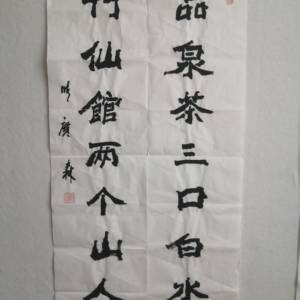 品泉茶三口白水
竹仙館两个山人
廣森